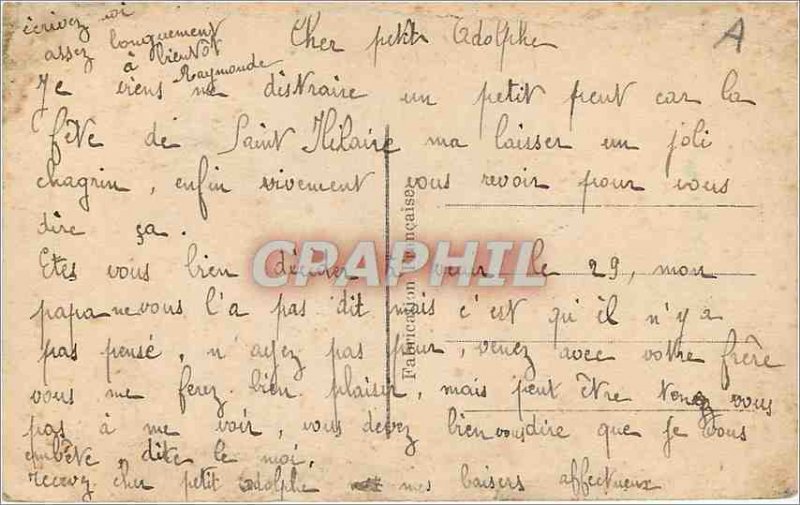 Cher petit Adolphe
A
Je viens me distraire un petit peut car la
fête de Saint Hilaire ma laisser un joli
chagrin, enfin vivement vous revoir pour vous
dire ça.
Etes vous bien décider à venir le 29, mon
papa ne vous l'a pas dit mais c'est qu'il n'y a
pas pensé, n'ayez pas peur, venez avec votre frère
vous me ferez bien plaisir, mais peut être tenez vous
pas à me voir, vous devez bien vous dire que je vous
embête, dite le moi,
recevez cher petit adolphe mes baisers affectueux
écrivez moi
assez longuement
à bientôt
Raymonde
Fabrication Française
CPAPHIL